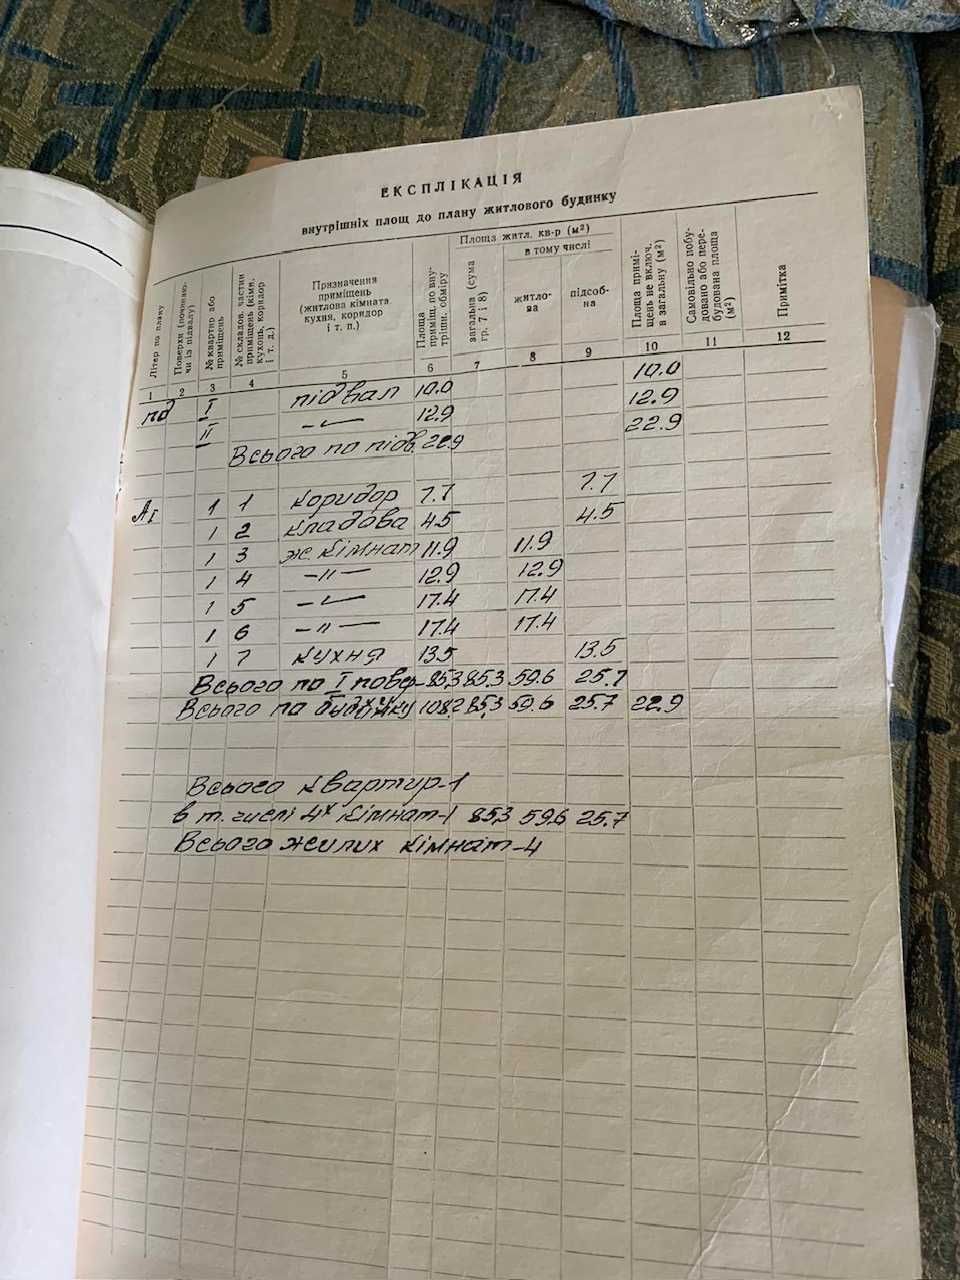 ЕКСПЛІКАЦІЯ
внутрішніх площ до плану житлового будинку
Літер по плану
Поверхи (починаючи із підвалу)
№ квартир або приміщень
№ складов. частин приміщень (кімн., кухонь, коридор і т. д.)
Призначення приміщень (житлова кімната, кухня, коридор і т. п.)
Площа приміщ. по внутрішн. обміру
Площа житл. кв-р (м²)
загальна (сума гр. 7 і 8)
в тому числі
житлова
підсобна
Площа приміщень не включ. в загальну (м²)
Самовільно побудовано або перебудована площа (м²)
Примітка
1 2 3 4 5 6 7 8 9 10 11 12
пд I підвал 10.0 10.0
II —〃— 12.9 12.9
Всього по підв. 22.9 22.9
АI 1 1 коридор 7.7 7.7
1 2 кладова 4.5 4.5
1 3 ж. кімнат 11.9 11.9
1 4 —〃— 12.9 12.9
1 5 —〃— 17.4 17.4
1 6 —〃— 17.4 17.4
1 7 кухня 13.5 13.5
Всього по I повер- 85.3 85.3 59.6 25.7
Всього по будинку 108.2 85.3 59.6 25.7 22.9
Всього квартир-1
в т. числі 4х кімнат-1 85.3 59.6 25.7
Всього жилих кімнат-4